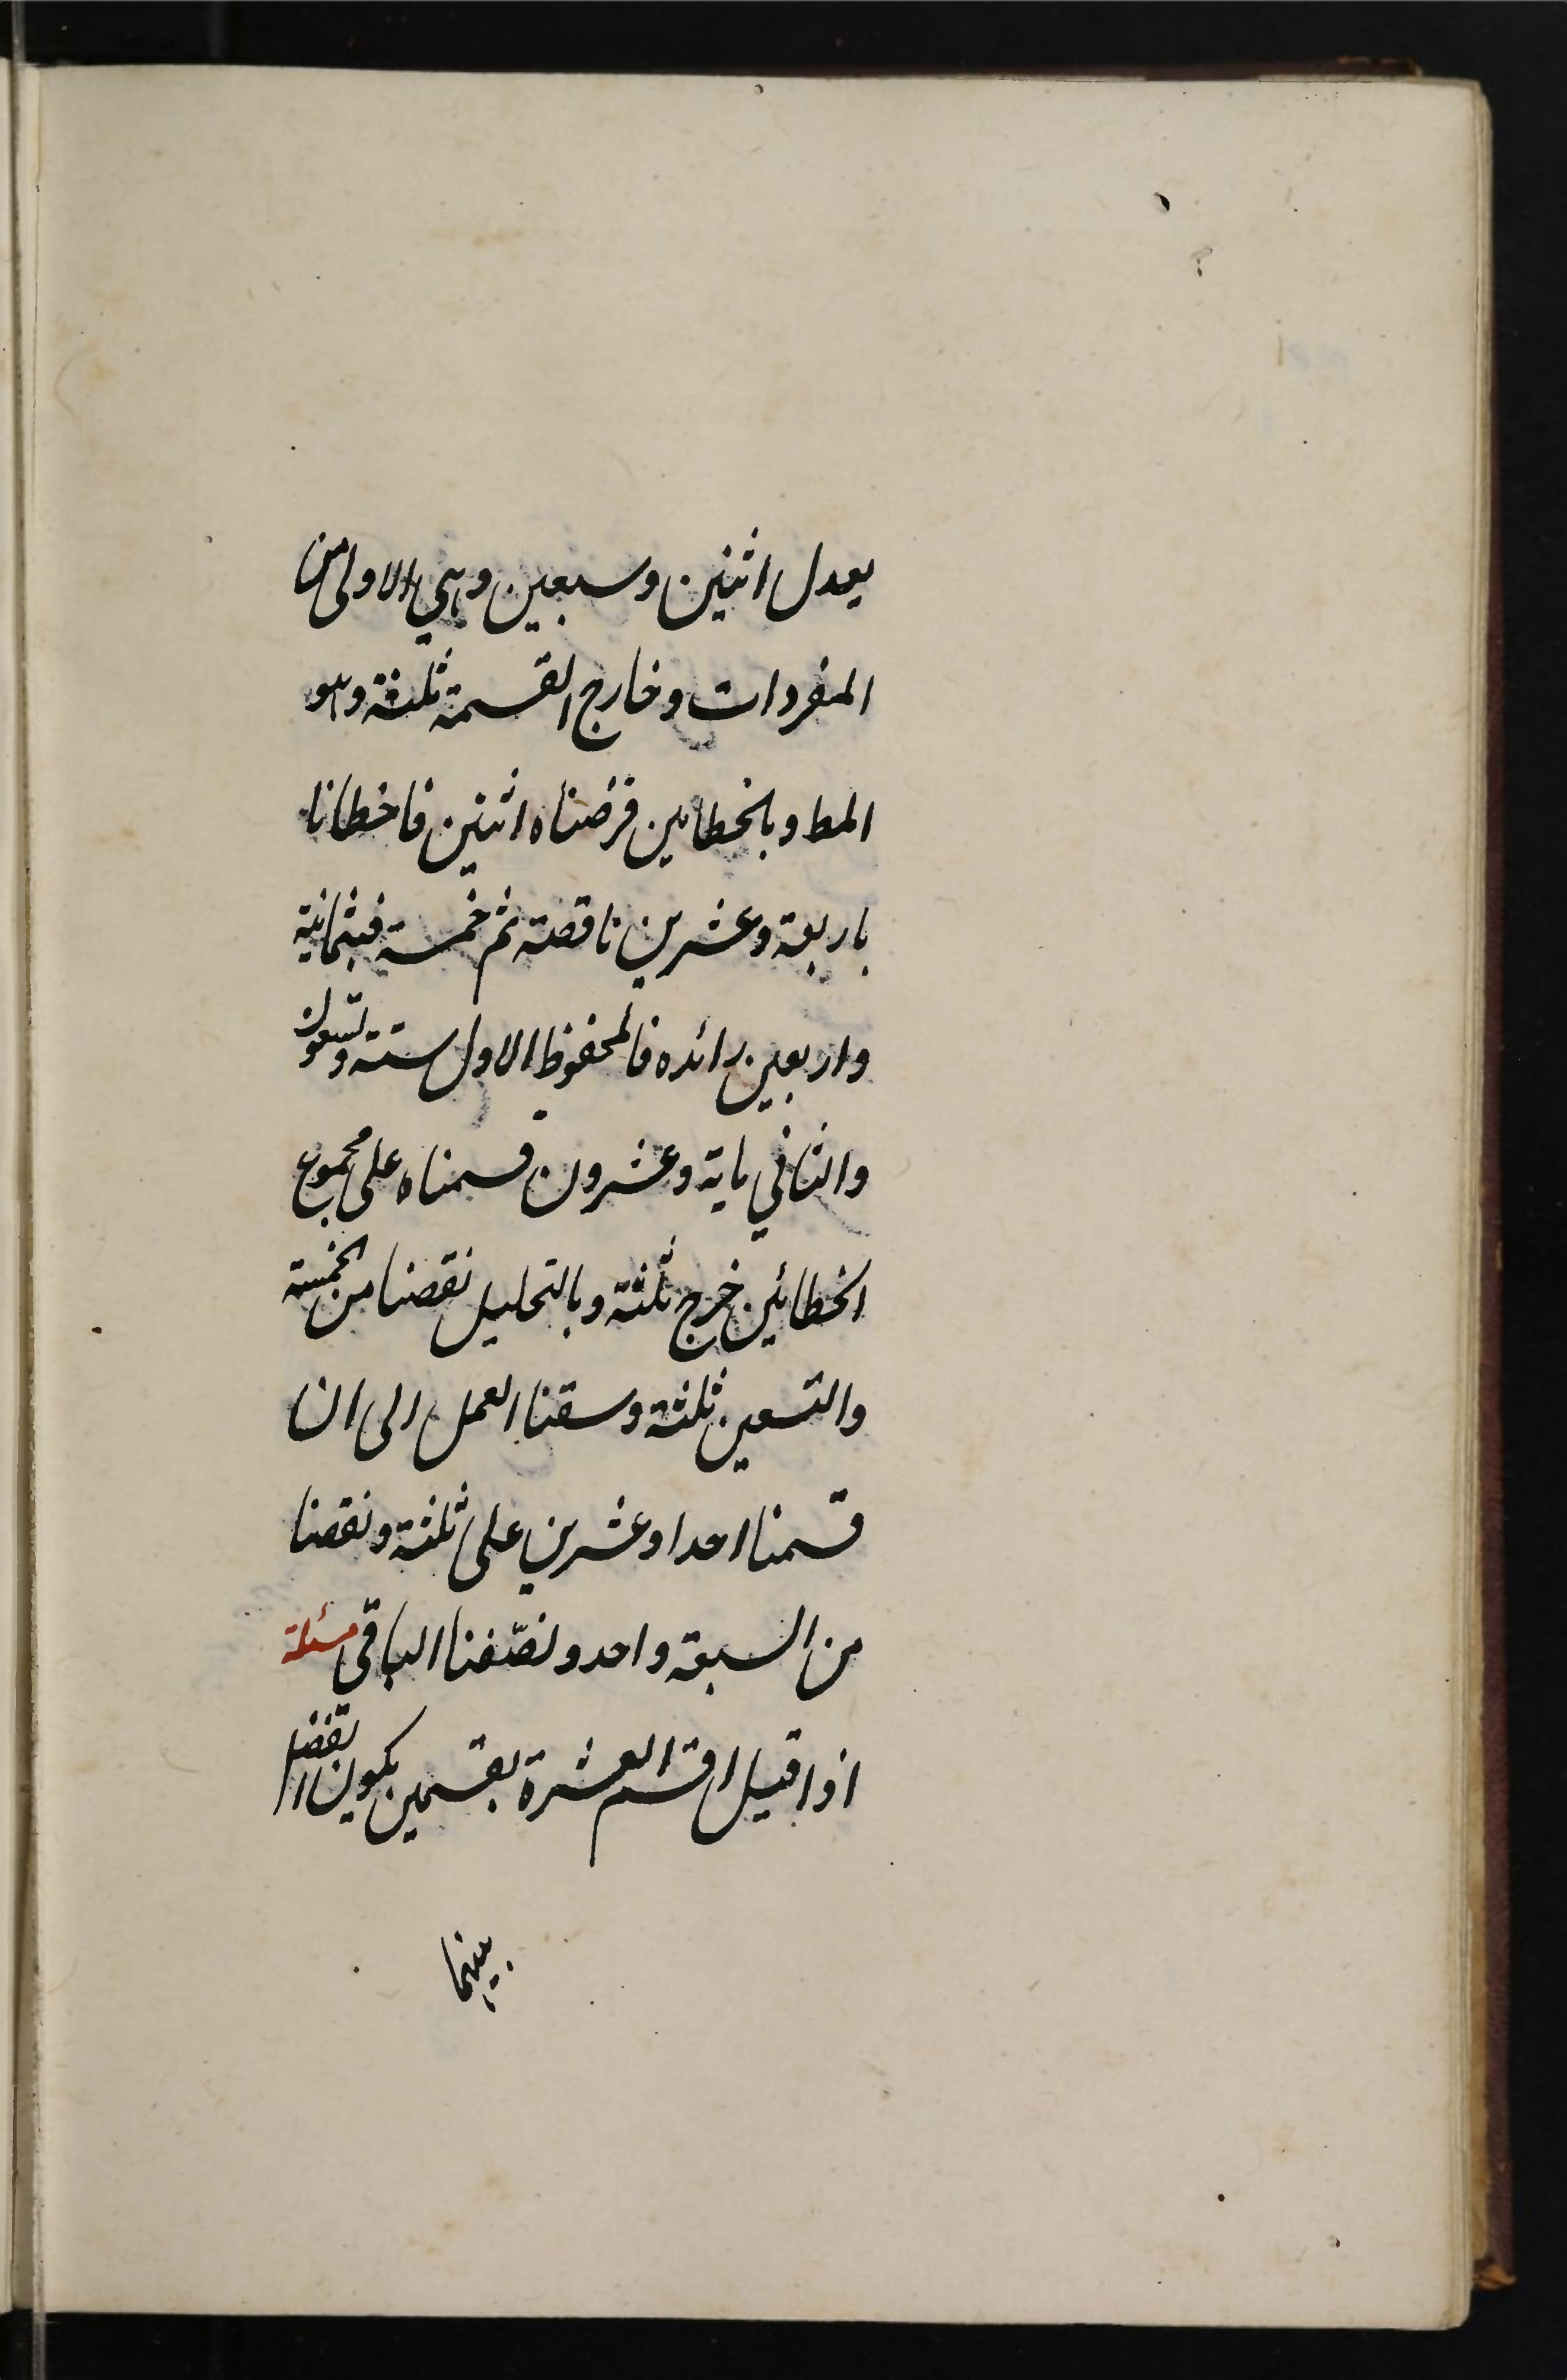 يعدل اثنين وسبعين وهي الاولى من
المفردات وخارج القسمة ثلثة وهو
المط وبالخطاين فرضناه اثنين فاخطانا
باربعة وعشرين ناقصة ثم خمسة فبثمانية
واربعين زائده فالمحفوظ الاول ستة وتسعون
والثاني ماية وعشرون قسمناه على مجموع
الخطائين خرج ثلثة وبالتحليل نقصنا من الخمسة
والتسعين ثلثة وسقنا العمل الى ان
قسمنا احدا وعشرين على ثلثة ونقصنا
من السبعة واحد ونصّفنا الباقي مسئلة
اذا قيل اقسم العشرة بقسمين يكون الفضل
بينهما